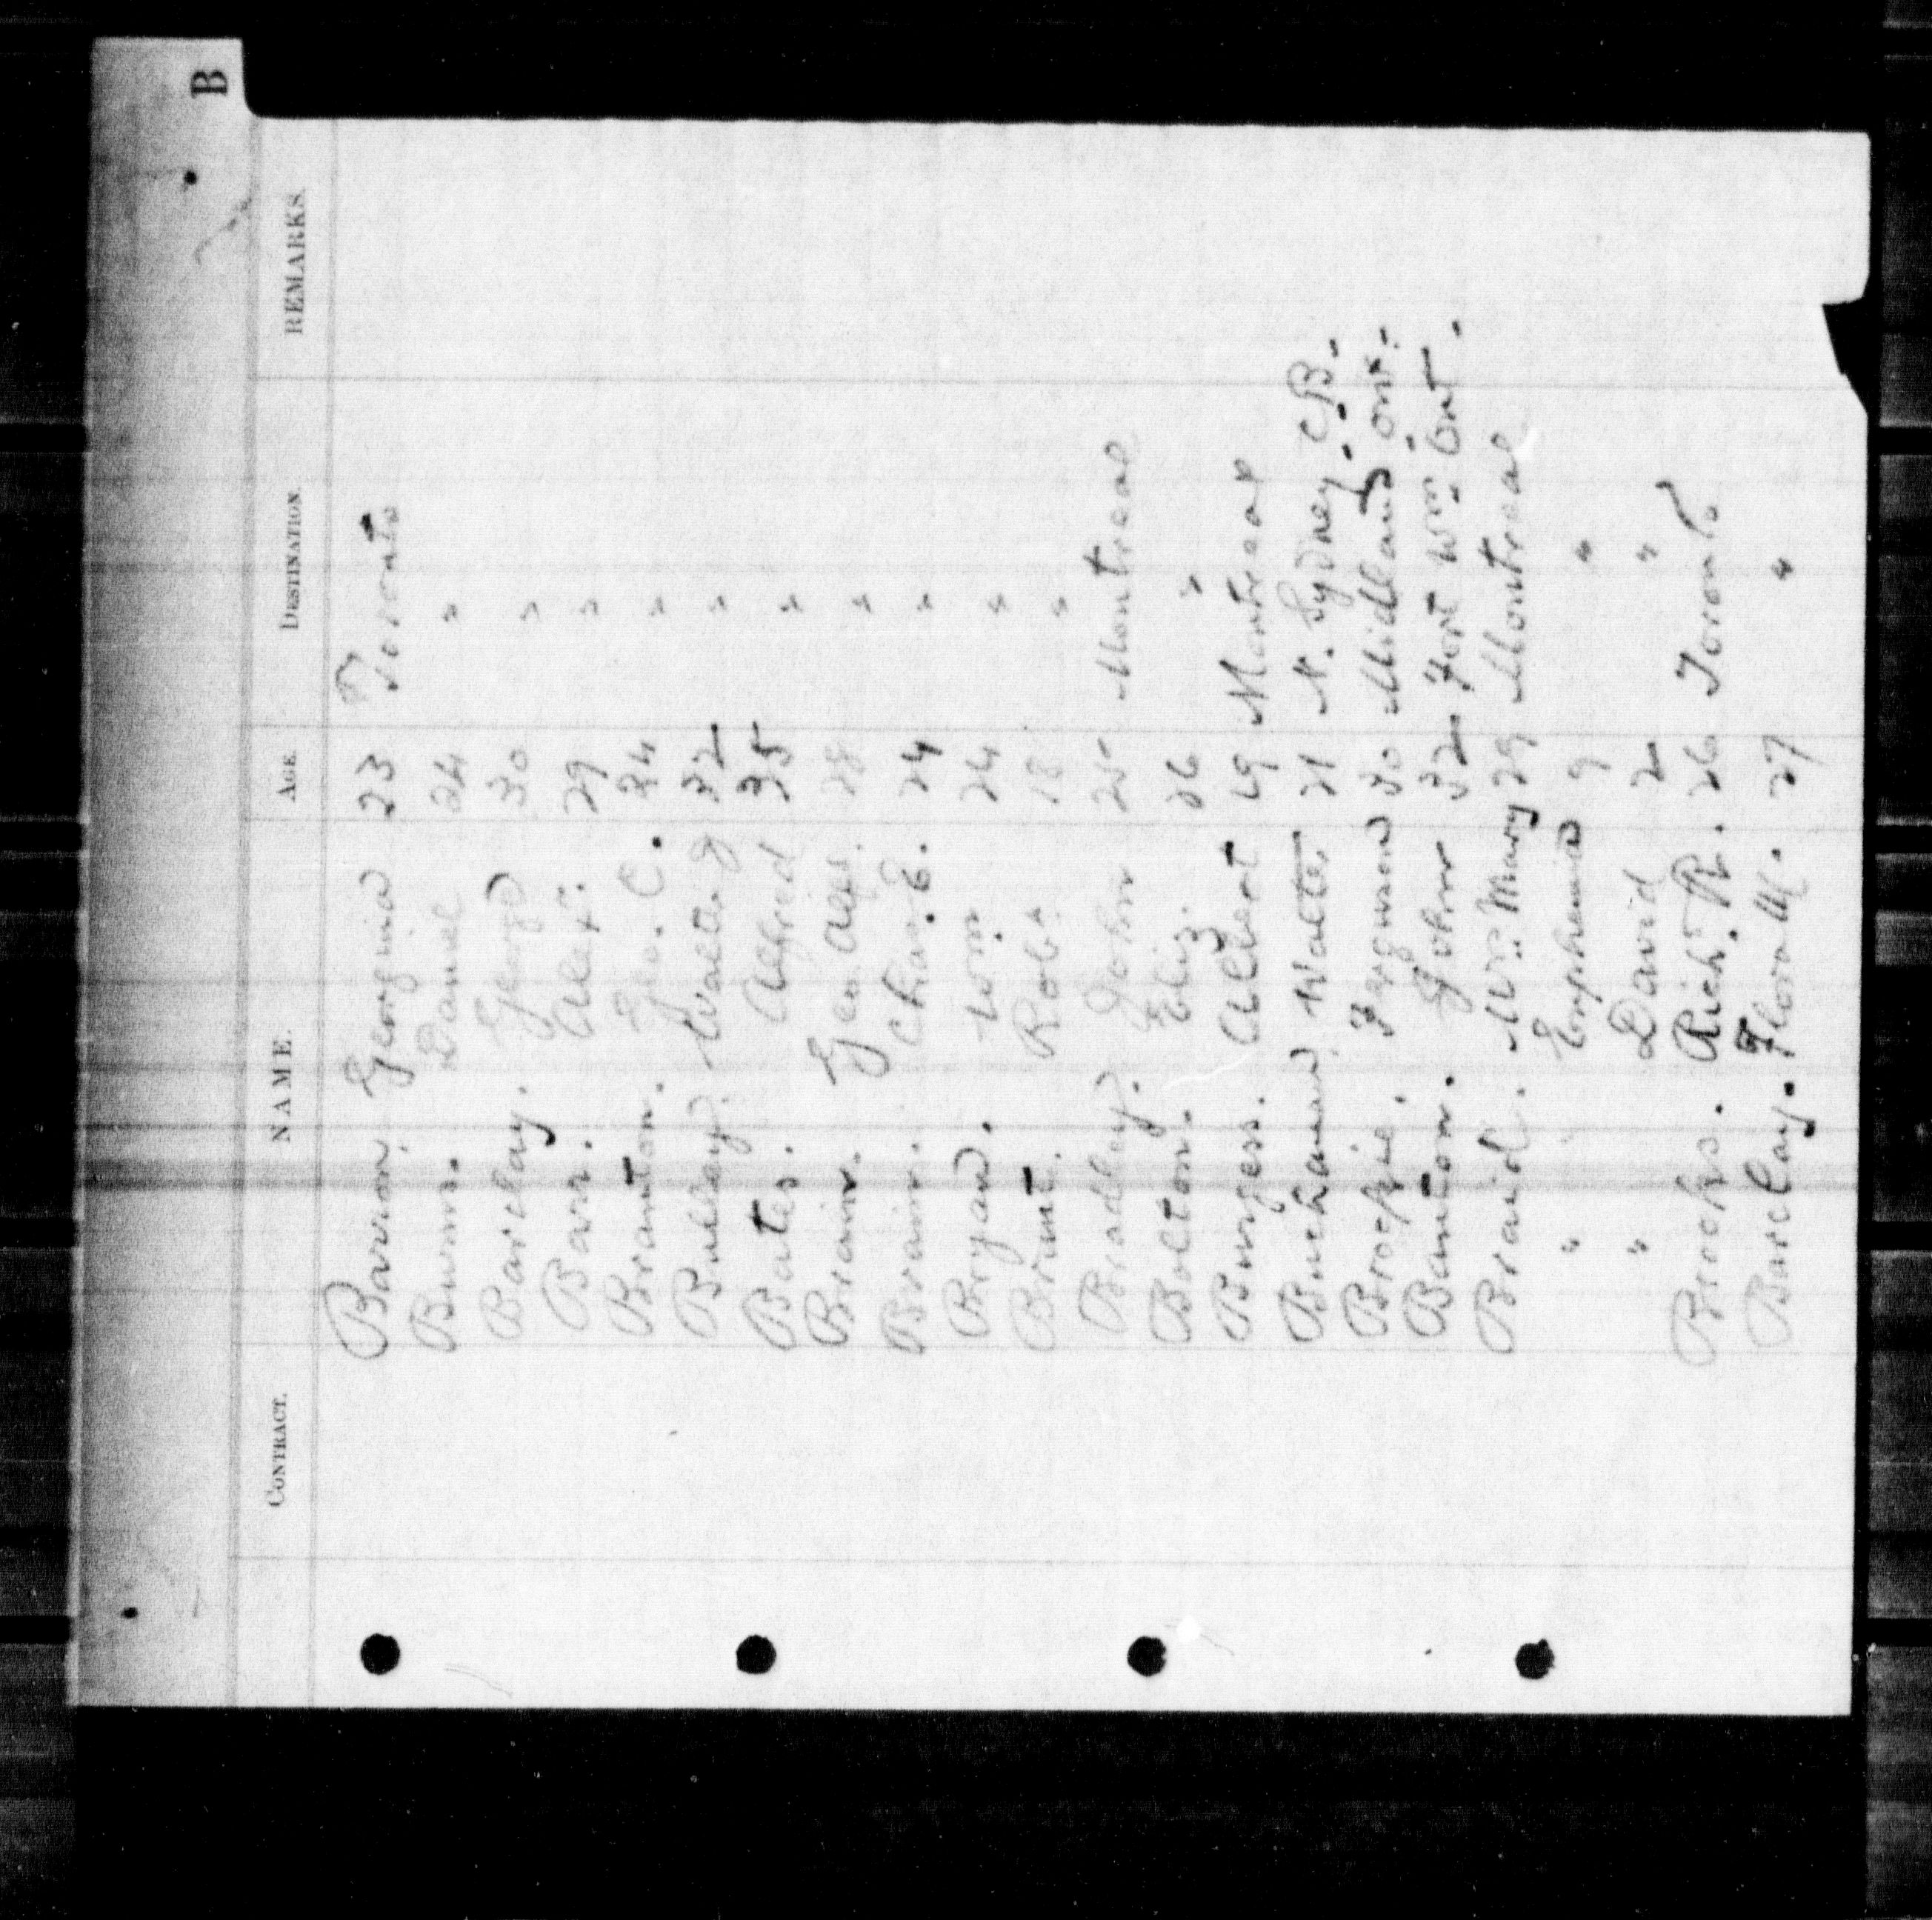 B
CONTRACT. NAME. AGE DESTINATION. REMARKS
Barron. Georgina 23 Toronto
Burns. Daniel 24 "
Barclay. George 30 "
Barr. Alex. 29 "
Branton. Geo. C. 24 "
Bulley. Walter J 32 "
Bates. Alfred 35 "
Brain. Geo Alf. 28 "
Brain. Chas. E. 24 "
Bryan. Wm. 24 "
Brunt. Robt 18 "
Bradley. John 25 Montreal
Bolton. Eliz. 26 "
Burgess. Albert 19 Montreal
Buchanan Walter 21 N. Sydney. C.B.
Brockie. Ferguson 30 Midland. Ont.
Banton. John 32 Fort Wm. Ont.
Braid. Mrs. Mary 29 Montreal
" Euphemia 9 "
" David 2 "
Brooks. Rich. R. 26 Toronto
Barclay. Flora M. 27 "